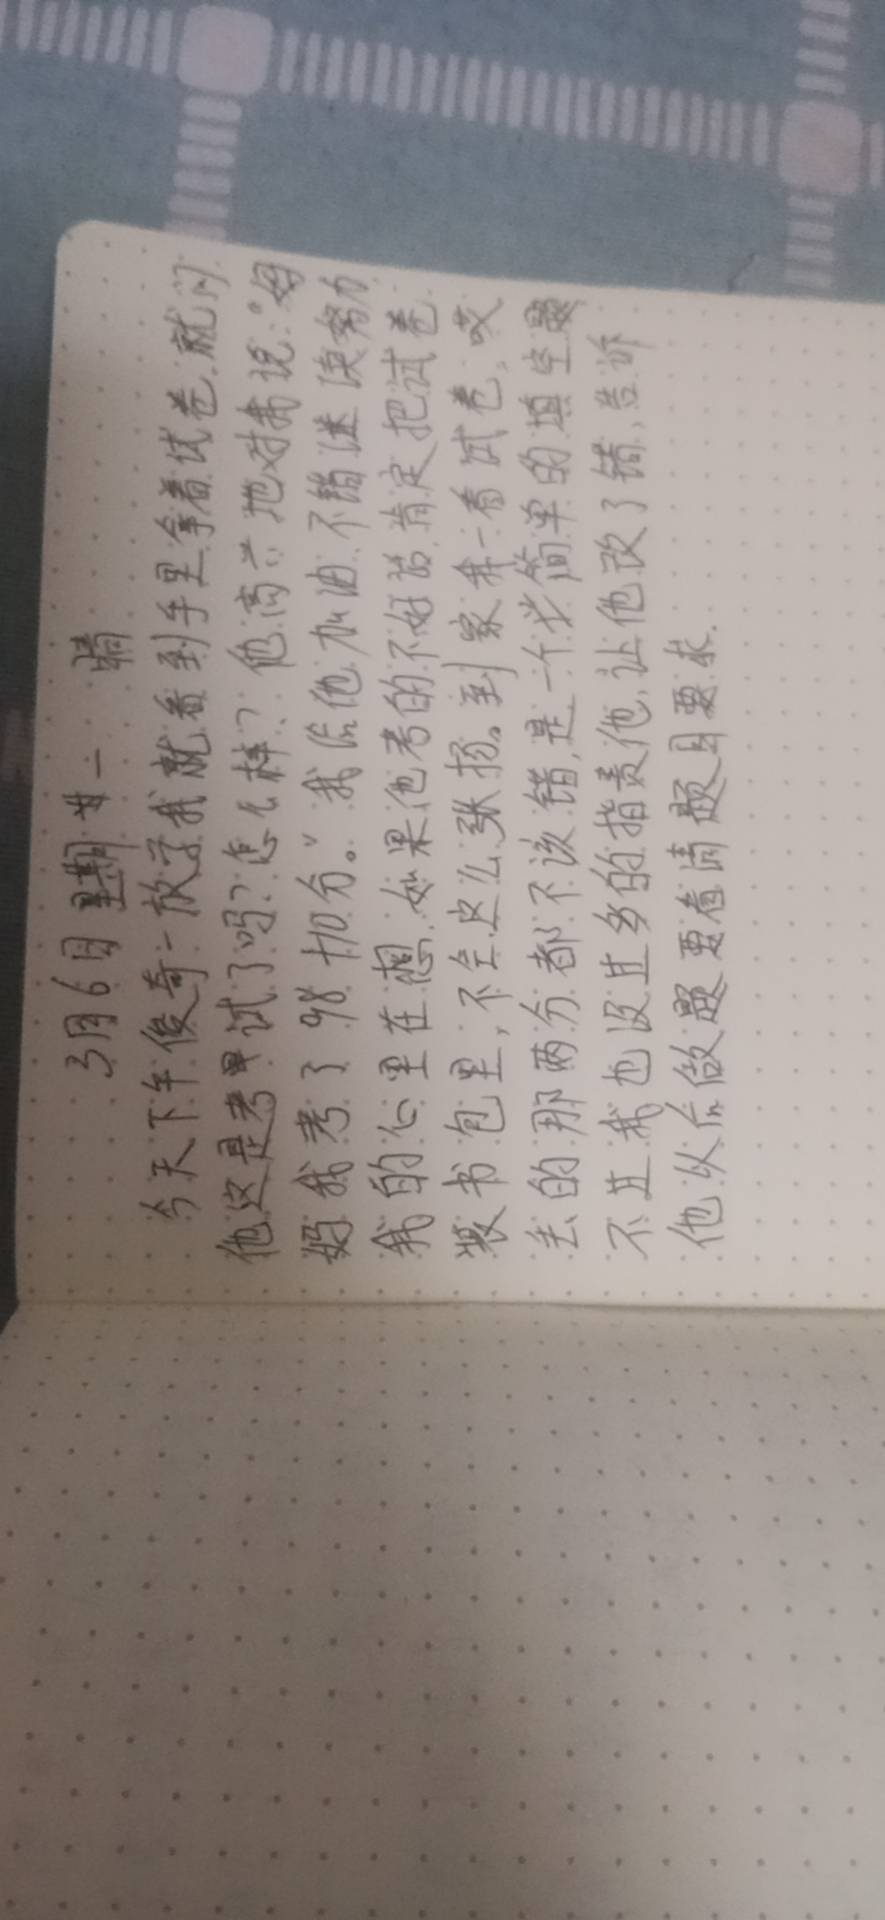 3月6日 星期廿一 晴
今天下午俊奇一放学我就看到手里拿着试卷,就问
他这是考单试了吗?怎么样?他高兴地对我说:"妈
妈我考了98+10分。"我给他加油不错继续努力
我的心里在想,如果他考的不好话肯定把试卷
装书包里,不会这么张扬。到家我一看试卷,哎
丢的那两分都不该错,是一个半简单的填空题
不过我也没过多的指责他,让他改了错,告诉
他以后做题要看清题目要求.